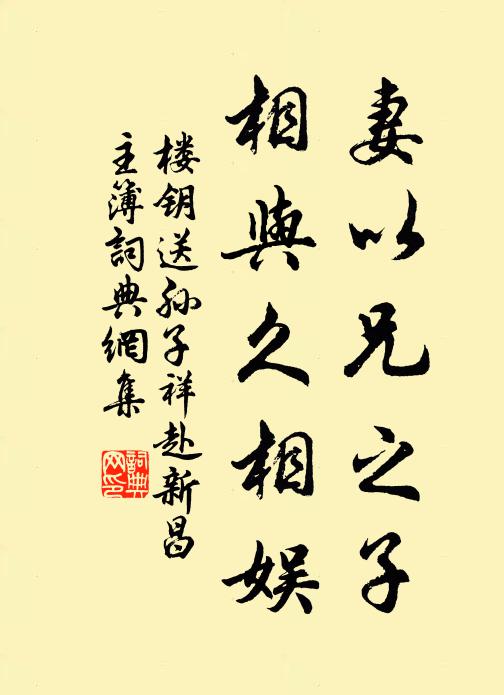 妻以兄之子
相與久相娱
楼钥送孙子祥赴新昌
主簿詞典網集
詞典网印